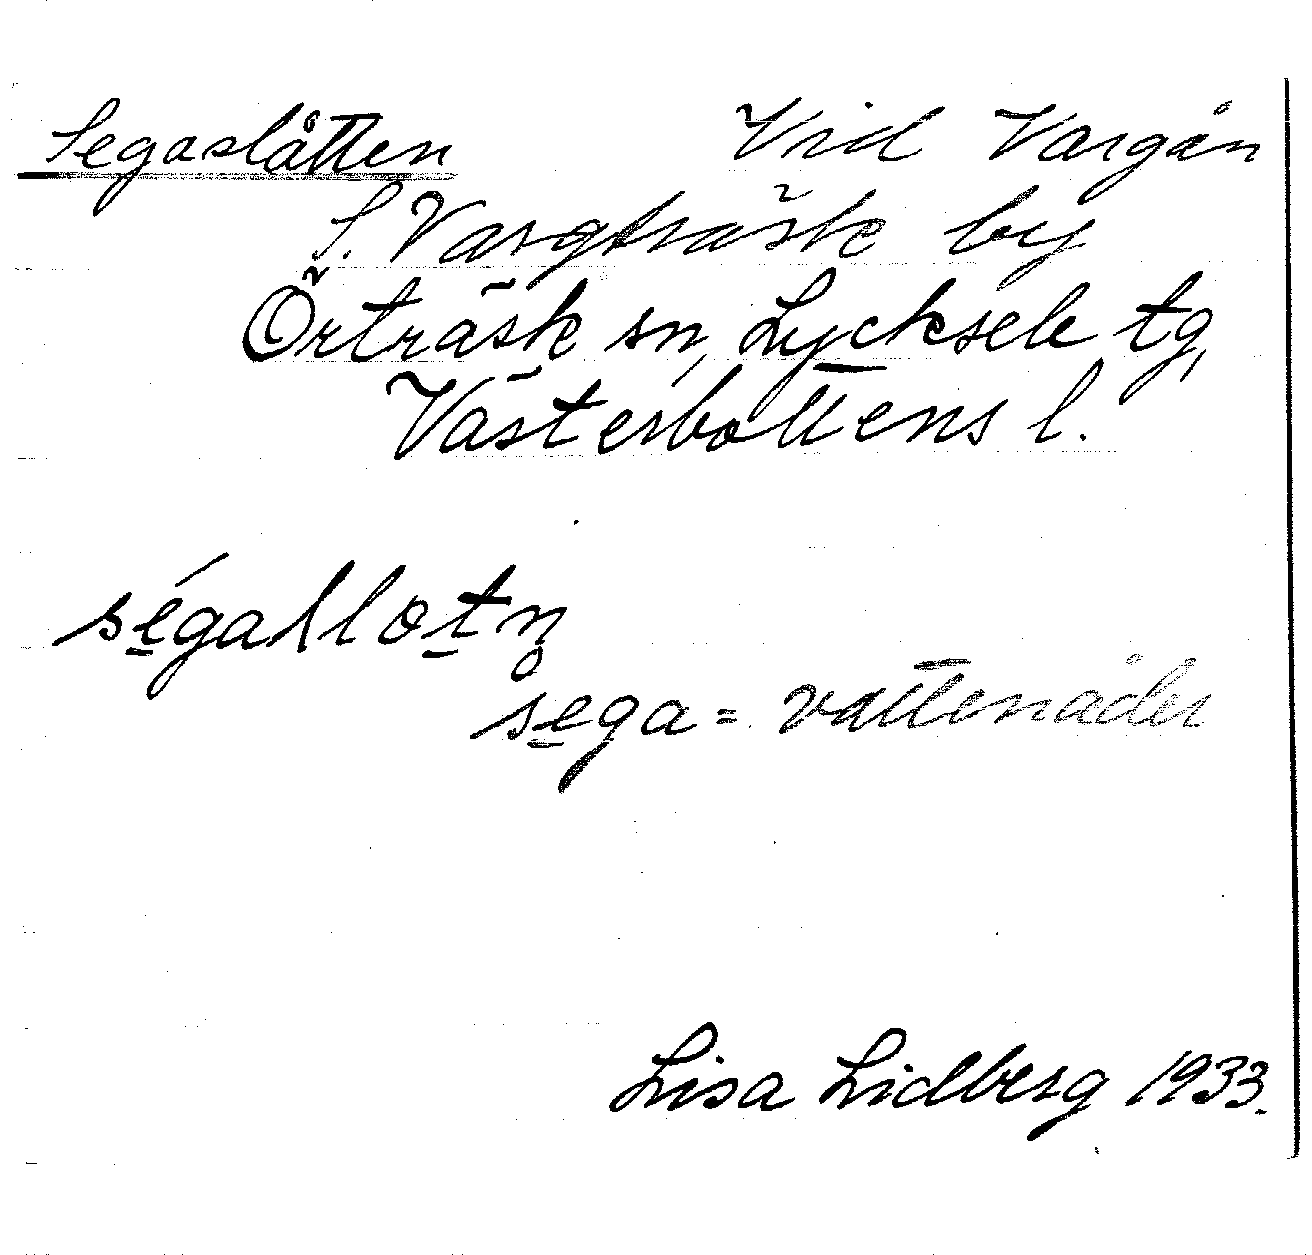 Segaslåtten Vid Vargån
S. Vargträsk by
Örträsk sn, Lycksele tg,
Västerbottens l.
ségallotn̥
sega = vattenåder
Lisa Lidberg 1933.